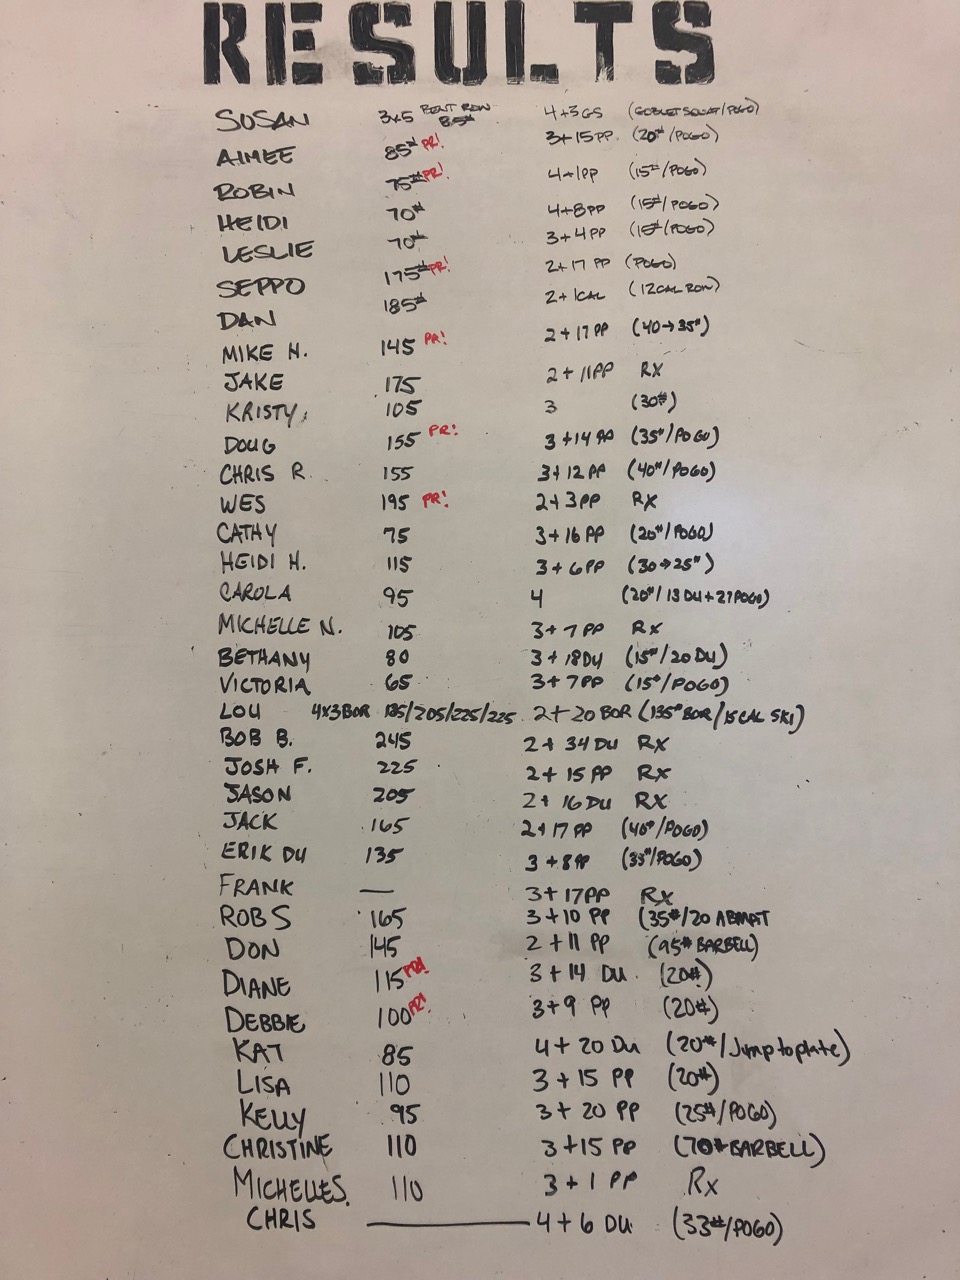 RESULTS
SUSAN 3x5 BENT ROW 85# 4+3GS (GOBLET SQUAT/POGO)
AIMEE 85# PR! 3+15PP (20#/POGO)
ROBIN 75# PR! 4+1PP (15#/POGO)
HEIDI 70# 4+8PP (15#/POGO)
LESLIE 70# 3+4PP (15#/POGO)
SEPPO 175# PR! 2+17 PP (POGO)
DAN 185# 2+1CAL (12CAL ROW)
MIKE H. 145 PR! 2+17 PP (40→35#)
JAKE 175 2+11PP RX
KRISTY 105 3 (30#)
DOUG 155 PR! 3+14 PP (35#/POGO)
CHRIS R. 155 3+12 PP (40#/POGO)
WES 195 PR! 2+3PP RX
CATHY 75 3+16 PP (20#/POGO)
HEIDI H. 115 3+6PP (30→25#)
CAROLA 95 4 (20#/13 DU+27POGO)
MICHELLE N. 105 3+7 PP RX
BETHANY 80 3+18DU (15#/20 DU)
VICTORIA 65 3+7PP (15#/POGO)
LOU 4x3BOR 185/205/225/225 2+20 BOR (135# BOR/15CAL SKI)
BOB B. 245 2+34 DU RX
JOSH F. 225 2+15 PP RX
JASON 205 2+16 DU RX
JACK 165 2+17 PP (40#/POGO)
ERIK DU 135 3+8PP (33#/POGO)
FRANK — 3+17PP RX
ROB S 165 3+10 PP (35#/20 ABMAT
DON 145 2+11 PP (95# BARBELL)
DIANE 115 PR! 3+14 DU (20#)
DEBBIE 100 PR! 3+9 PP (20#)
KAT 85 4+20 DU (20#/Jump to plate)
LISA 110 3+15 PP (20#)
KELLY 95 3+20 PP (25#/POGO)
CHRISTINE 110 3+15 PP (70# BARBELL)
MICHELLE S. 110 3+1 PP Rx
CHRIS — 4+6 DU (33#/POGO)